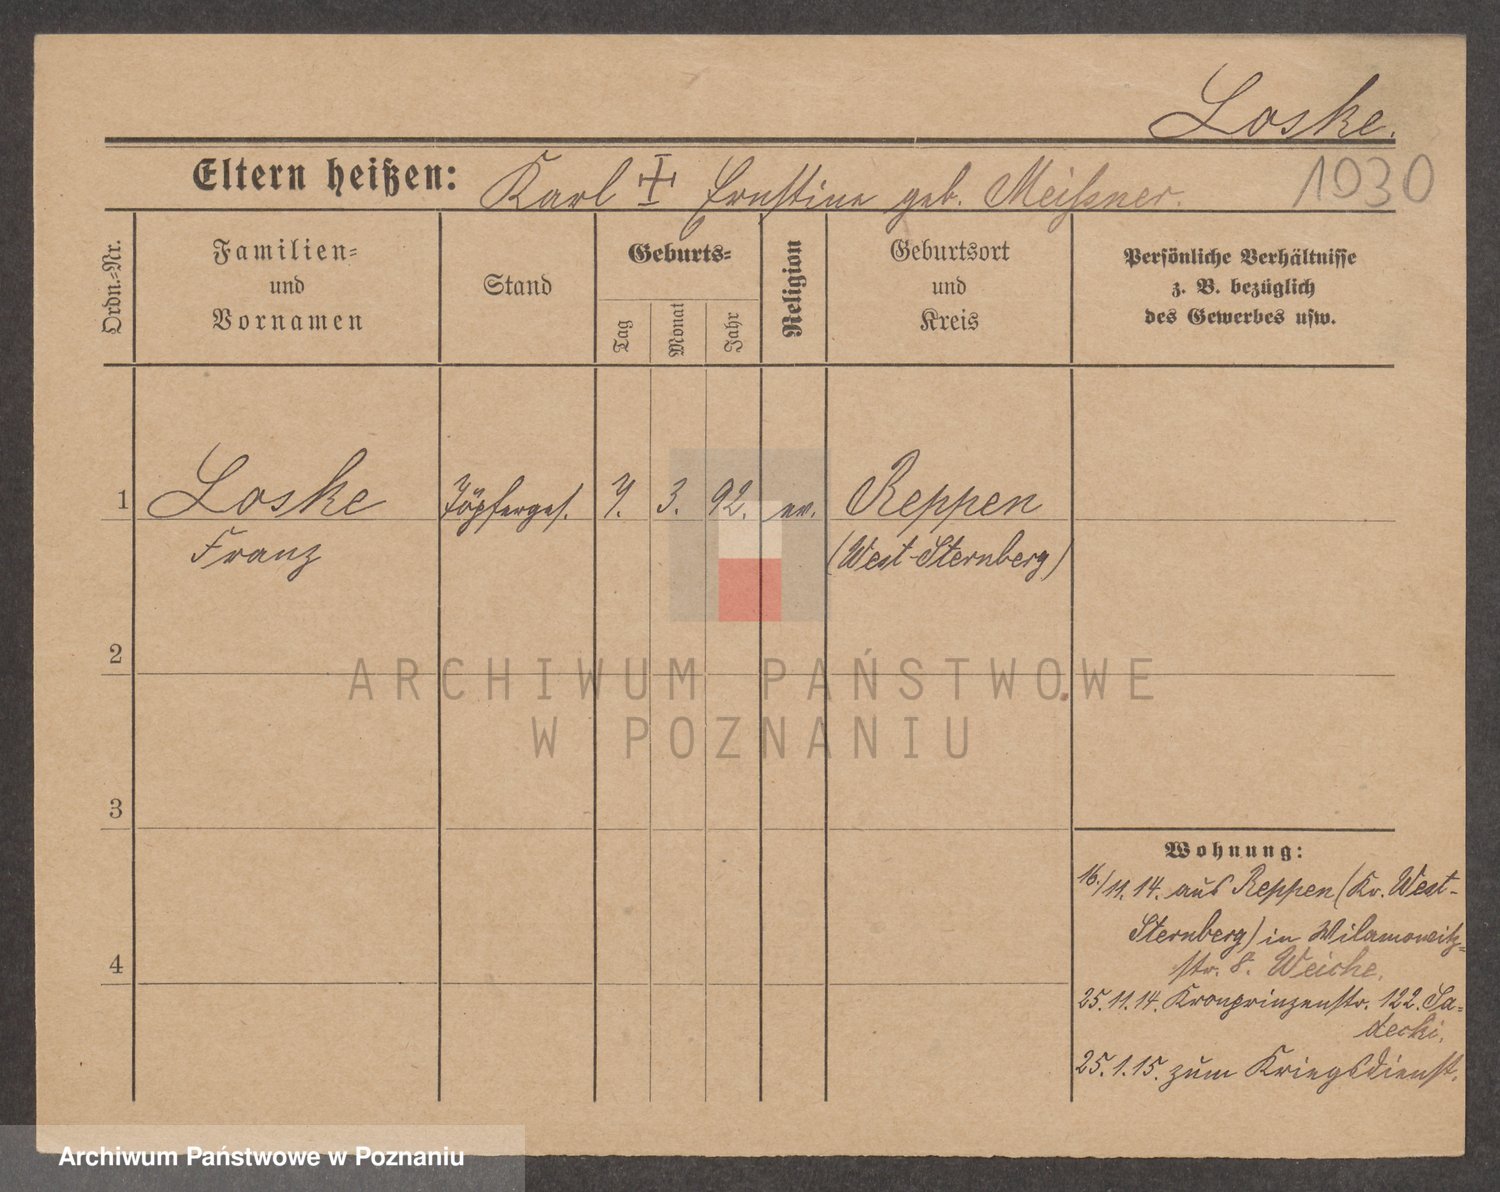 Loske.
1030
Eltern heißen: Karl ☩ Ernstine geb. Meißner.
Ordn.-Nr.
Familien-
und
Vornamen
Stand
Geburts-
Tag
Monat
Jahr
Religion
Geburtsort
und
Kreis
Persönliche Verhältnisse
z. B. bezüglich
des Gewerbes usw.
1 Loske Töpferges. 7. 3. 92. ev. Reppen
Franz (West-Sternberg)
2
3
4
Wohnung:
16./11.14. aus Reppen (Kr. West-
Sternberg) in Wilamowitz-
str. 8. Weiche.
25.11.14. Kronprinzenstr. 122. Sa-
decki.
25.1.15. zum Kriegsdienst.
ARCHIWUM PAŃSTWOWE
W POZNANIU
Archiwum Państwowe w Poznaniu